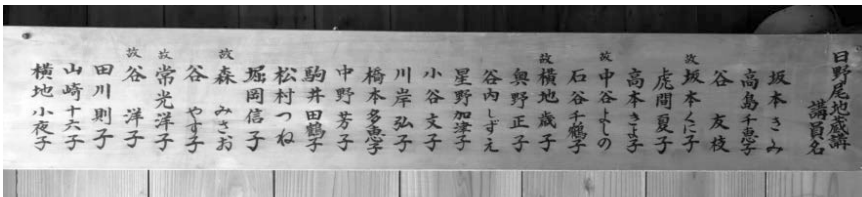 日野尾地蔵講
講員名
坂本きみ
高島千恵子
谷友枝
故 坂本くに子
虎間夏子
高本きよ子
故 中谷よしの
石谷千鶴子
故 横地歳子
奥野正子
谷内しずえ
星野加津子
小谷文子
川岸弘子
橋本多恵子
中野芳子
駒井田鶴子
松村つね
堀岡信子
故 森みさお
谷やす子
故 常光洋子
故 谷洋子
田川則子
山崎十六子
横地小夜子